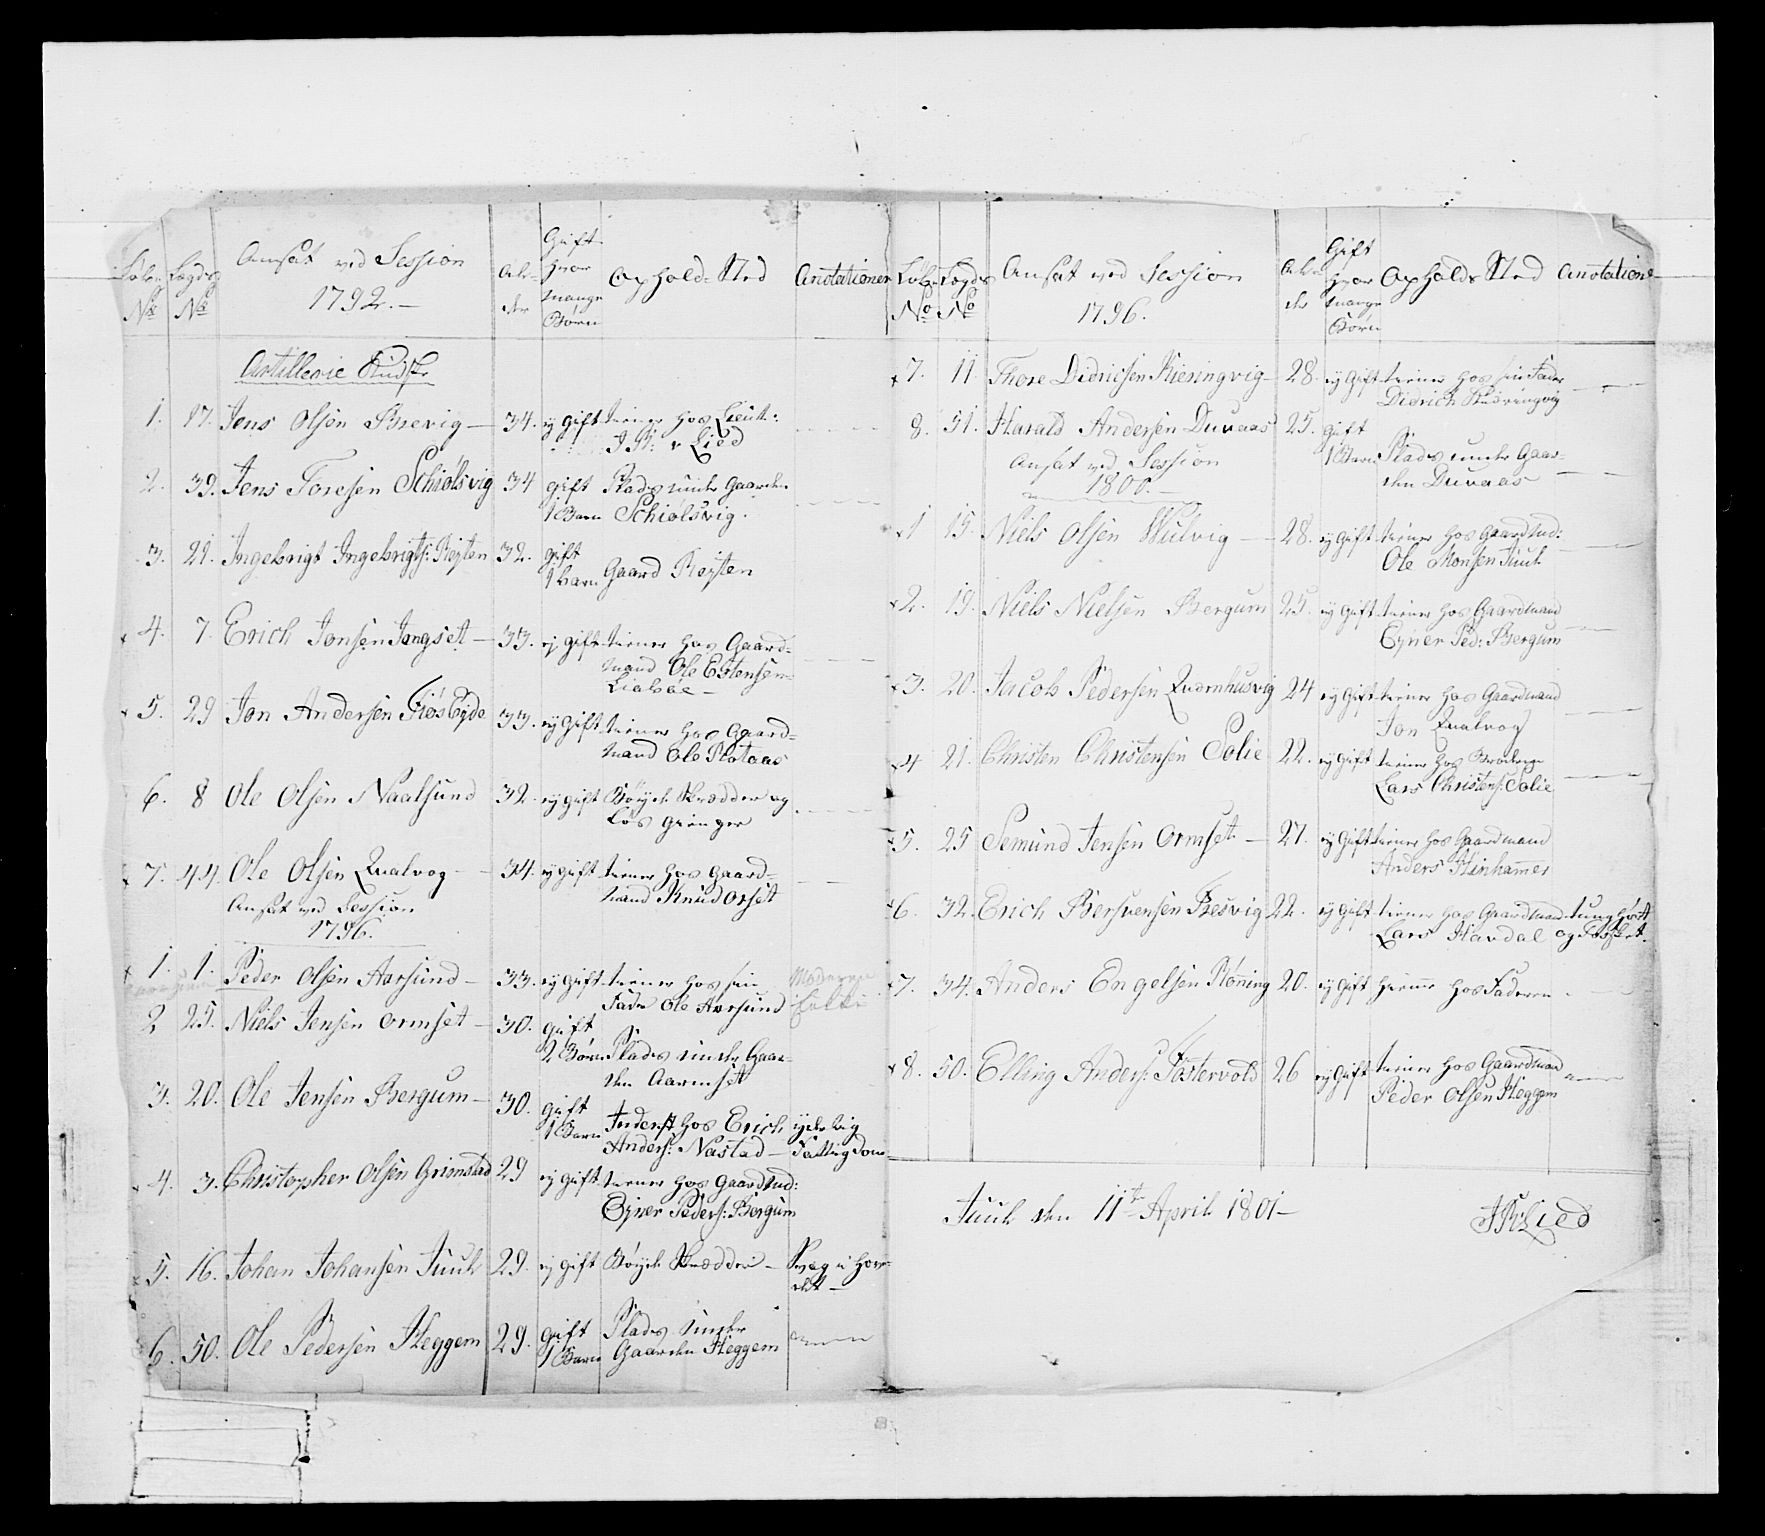 Løbe No | Lægds No | Ansat ved Session 1792.— | Alder | Gift hvor mange Børn | Ophold-Sted | Anotationer
Artillerie Kudske
1. 17. Jens Olsen Brevig — 34. ej gift tiener hos Lieut:
v Lied
2. 39. Jens Toresen Schiølsvig 34 gift Plads under Gaarden
1 Barn Schiølsvig.
3. 21. Ingebrigt Ingebrigts: Rejten 32. gift
1 barn Gaard Rejten
4. 7. Erich Jonsen Jongset — 33. ej gift tiener hos Gaard-
mand Ole Estensen
Liabøe —
5. 29 Jon Andersen Fiøs Eyde 33. ej gift tiener hos Gaard-
mand Ole
6. 8 Ole Olsen Naalsund 32. ej gift Bøyde Skrædder og
Løs Gienger
7. 44. Ole Olsen Qualvog — 34. ej gift tiener hos Gaard-
mand Knud Orset
Ansat ved Session
1796.
1. 1. Peder Olsen Aarsund — 33. ej gift tiener hos sin
Fader Ole Aarsund
2 25. Niels Jensen Ormset — 30. gift
2 Børn Plads under Gaar-
den Aarmset
3. 20. Ole Jensen Bergum — 30. gift
1 Barn Inderst hos Erich
Anders: Nastad —
4. 3. Christopher Olsen Grimstad 29 ej gift tiener hos Gaardmd:
Eyner Peders: Bergum
5. 16. Johan Johansen Juul 29. ej gift Bøyde Skrædder — Svag i Hove-
det —
6. 50. Ole Pedersen Heggem 29. gift Plads under
1 Barn Gaarden Heggem
Løbe No | Lægds No | Ansat ved Session 1796. | Alder | Gift hvor mange Børn | Opholds Sted | Anotationer
7. 11. Thore Didricsen Kiesingvig — 28. ej gift tiener hos sin Fader
Didrich
8. 51. Harald Andersen Duvaas 25. gift
1 Barn Plads under Gaar-
den Duvaas
Ansat ved Session
1800.—
1 15. Niels Olsen Wulvig — 28. ej gift tiener hos Gaardmd:
Ole Monsen Juul
2. 19. Niels Nielsen Bergum 25. ej gift tiener hos Gaardmand
Eyner Ped: Bergum
3. 20. Jacob Pedersen Quernhusvig 24 ej gift tiener hos Gaardmand
Jon Qualvog
4 21. Christen Christensen Solie 22. ej gift tiener hos
Lars Christens: Solie
5. 25 Semund Jensen Ormset — 27. ej gift tiener hos Gaardmand
Anders Stenhammer
6. 32. Erich Bersvensen 22. ej gift tiener hos Gaardmand tunghørt
Lars Havdal og
7. 34. Anders Engelsen Rønning 20. ej gift hiemme hos Faderen
8. 50. Elling Anders: Fostervold 26 ej gift tiener hos Gaardmand
Peder Olsen Heggem
Juul den 11te April 1801—